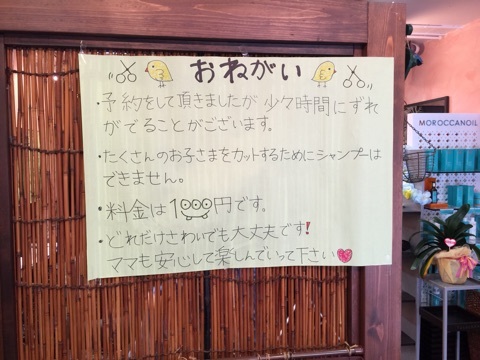 おねがい
・予約をして頂きましたが 少々時間にずれ
がでることがございます。
・たくさんのお子さまをカットするためにシャンプーは
できません。
・料金は1000円です。
・どれだけさわいでも大丈夫です!
ママも安心して楽しんでいって下さい
MOROCCANOIL